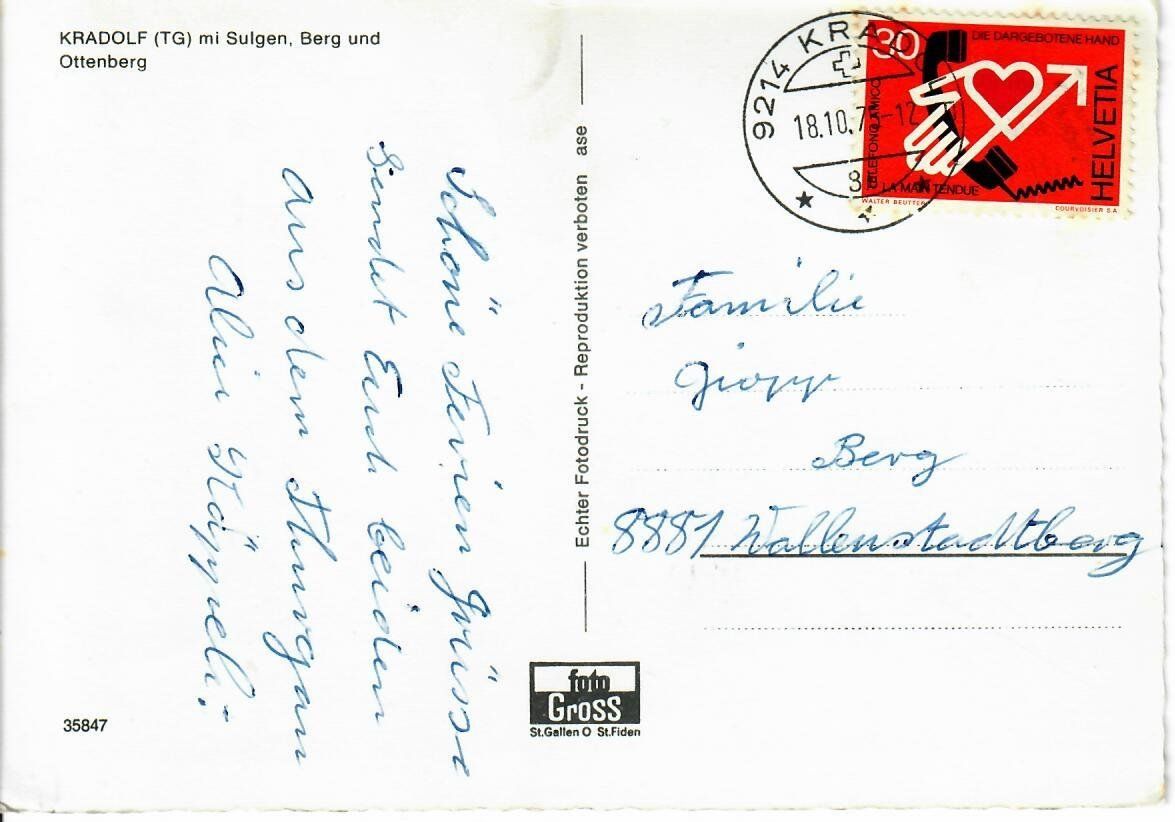 KRADOLF (TG) mi Sulgen, Berg und
Ottenberg
Schöne Feriengrüsse
Sendet Euch beiden
aus dem Thurgau
Käppeli
35847
Echter Fotodruck - Reproduktion verboten ase
foto
Gross
St.Gallen O St.Fiden
9214 KRADOLF
18.10.7 -12
30
DIE DARGEBOTENE HAND
TELEFONO AMICO
LA MAIN TENDUE
HELVETIA
WALTER BEUTTER
COURVOISIER S.A.
Familie
Giopp
Berg
8881 Wallenstadtberg